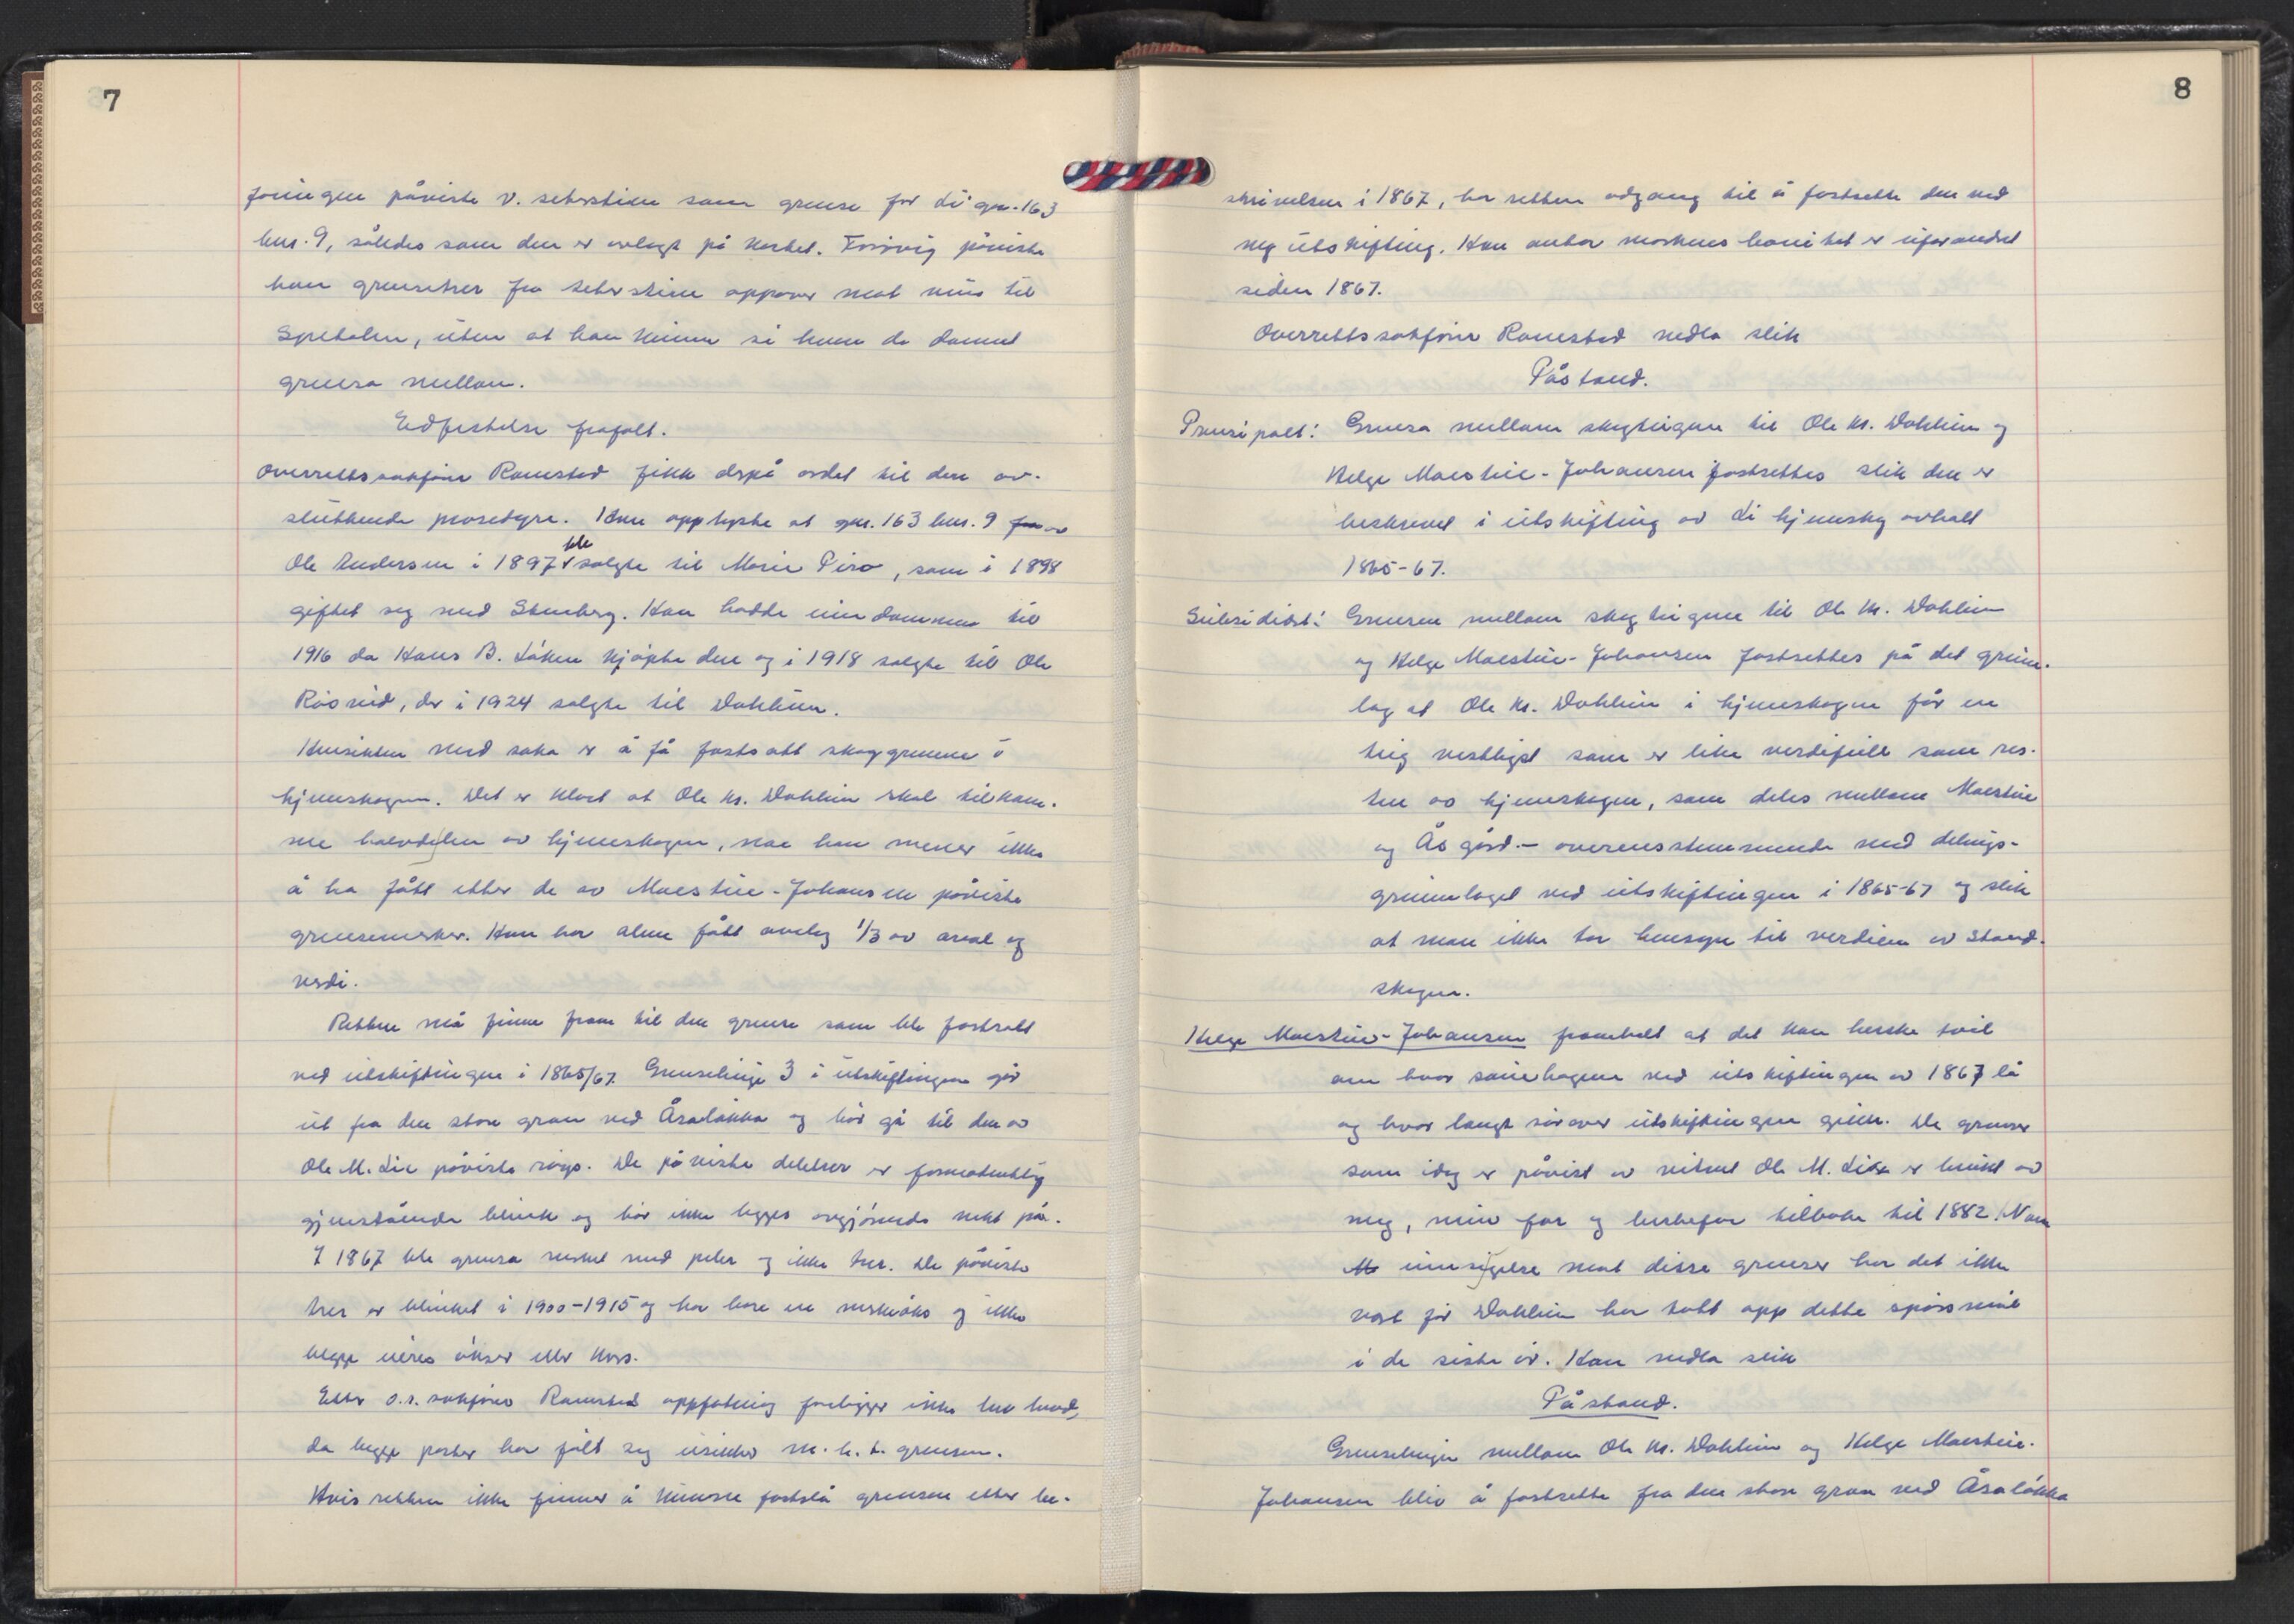 7
foringen påviste v. seterstien som grense for Li gnr. 163
bnr. 9, således som den er avlagt på kartet. Forøvrig påviste
han grensetrær fra seterstien oppover mot nus til
Spetalen, uten at han kunne si hvem de dannet
grensa mellom.
Edfestelse frafalt.
Overrettssakfører Ramstad fikk derpå ordet til den av-
sluttende prosedyre. Han opplyste at gnr. 163 bnr. 9 av
Ole Andersen i 1897 ble solgte til Marie Piro, som i 1898
giftet seg med Stenberg. Han hadde eiendommen til
1916 da Hans B. Løken kjøpte den og i 1918 solgte til Ole
Røsnid, der i 1924 solgte til Dahliin.
Hensikten med saka er å få fastsatt skoggrensene i
hjemskogen. Det er klart at Ole Kr. Dahliin skal tilkom-
me halvdelen av hjemskogen, noe han mener ikke
å ha fått etter de av Moestue-Johansen påviste
grensemerker. Han har alene fått omlag 1/3 av areal og
verdi.
Retten må finne fram til den grense som ble fastsatt
ved utskiftingen i 1865/67. Grenselinje 3 i utskiftingen går
ut fra den store gran ved Åsaløkka og bør gå til den av
Ole M. Lie påviste røys. De påviste delelser er formodentlig
gjenstående blink og bør ikke legges avgjørende vekt på.
I 1867 ble grensa merket med peler og ikke trær. De påviste
trær er blinket i 1900-1915 og har bare en merkeøks og ikke
begge eieres økser eller kors.
Etter o.r. sakfører Ramstad oppfatning foreligger ikke hevd,
da begge parter har følt seg usikker m.h.t. grensen.
Hvis retten ikke finner å kunne fastslå grensene etter be-
8
skrivelsen i 1867, har retten adgang til å fastsette den ved
ny utskifting. Han antar markens bonitet er uforandret
siden 1867.
Overrettssakfører Ramstad nedla slik
Påstand.
Prinsipalt: Grensa mellom skogteigene til Ole Kr. Dahliin og
Helge Moestue-Johansen fastsettes slik den er
beskrevet i utskifting av Li hjemskog avholdt
1865-67.
Subsidiært: Grensen mellom skogteigene til Ole Kr. Dahliin
og Helge Moestue-Johansen fastsettes på det grunn-
lag at Ole Kr. Dahliin i hjemskogen får en
teig vestligst som er like verdifull som res-
ten av hjemskogen, som deles mellom Moestue
og Ås gård. - overensstemmende med delings-
grunnlaget ved utskiftingen i 1865-67 og slik
at man ikke tar hensyn til verdien av stand-
skogen.
Helge Moestue-Johansen framholdt at det kan herske tvil
om hvor sauehagene ved utskiftingen av 1867 lå
og hvor langt sørover utskiftingen gikk. De grenser
som idag er påvist av vitnet Ole M. Lie er brukt av
meg, min far og bestefar tilbake til 1882. Noen
innsigelse mot disse grenser har det ikke
vært før Dahliin har tatt opp dette spørsmål
i de siste år. Han nedla slik
Påstand.
Grenselinjen mellom Ole Kr. Dahliin og Helge Moestue-
Johansen blir å fastsette fra den store gran ved Åsaløkka